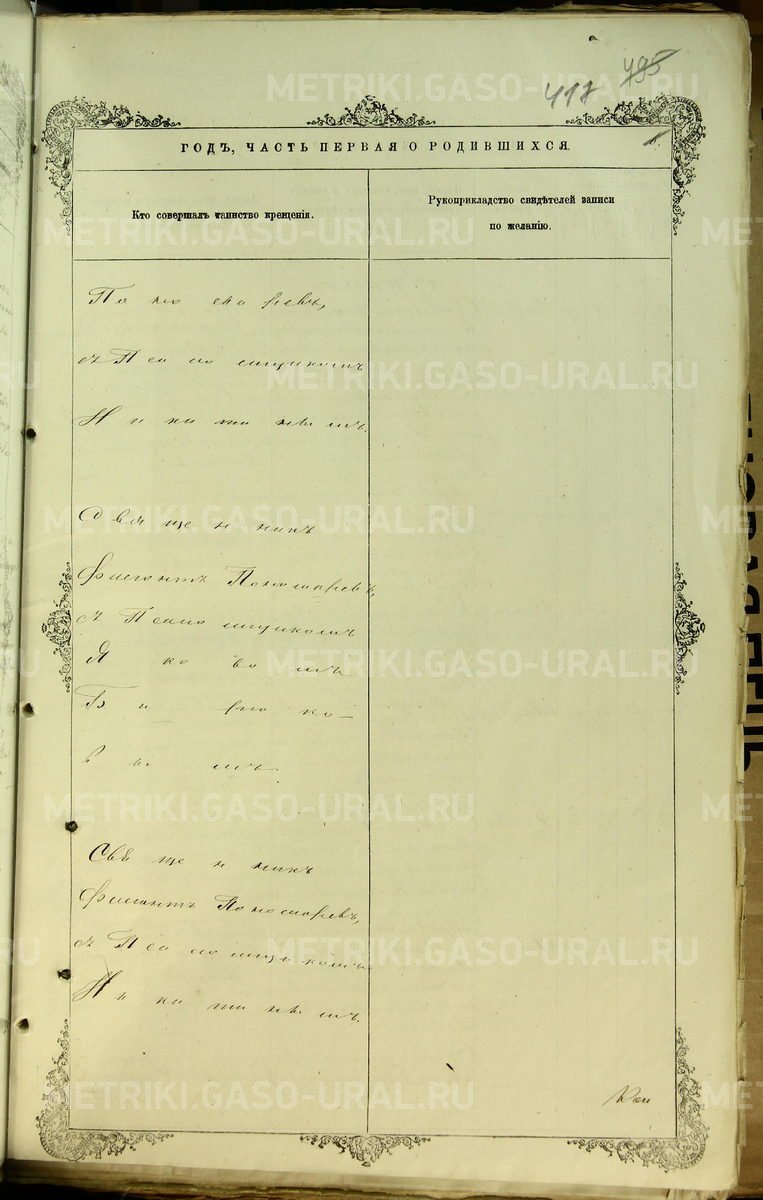 METRIKI.GASO-URAL.RU
417
495
ГОДЪ, ЧАСТЬ ПЕРВАЯ О РОДИВШИХСЯ.
Кто совершалъ таинство крещенія.
Рукоприкладство свидѣтелей записи
по желанію.
Пономаревъ,
съ Псаломщикомъ
Никитинымъ.
Священникъ
Пономаревъ,
съ Псаломщикомъ
Яковомъ
Бирюко-
вымъ
Священникъ
Пономаревъ,
съ Псаломщикомъ
Никитинымъ.